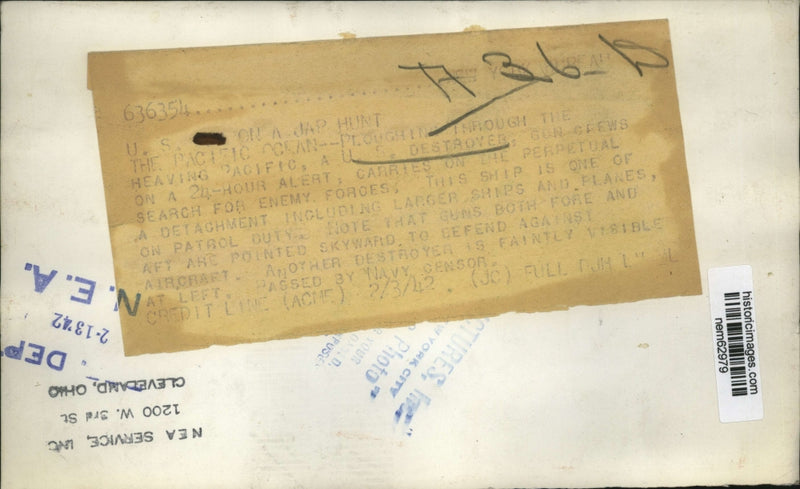 A 36-B
NEW YORK BUREAU
636354
U. S. ON A JAP HUNT
THE PACIFIC OCEAN--PLOUGHING THROUGH THE
HEAVING PACIFIC, A U. S. DESTROYER, GUN CREWS
ON A 24-HOUR ALERT, CARRIES ON THE PERPETUAL
SEARCH FOR ENEMY FORCES. THIS SHIP IS ONE OF
A DETACHMENT INCLUDING LARGER SHIPS AND PLANES,
ON PATROL DUTY. NOTE THAT GUNS BOTH FORE AND
AFT ARE POINTED SKYWARD TO DEFEND AGAINST
AIRCRAFT. ANOTHER DESTROYER IS FAINTLY VISIBLE
AT LEFT. PASSED BY NAVY CENSOR.
CREDIT LINE (ACME) 2/3/42 (JC) FULL
N.E.A.
2-13'42
DEP
NEA SERVICE, INC
1200 W. 3rd St
CLEVELAND, OHIO
PICTURES, Inc.
NEW YORK CITY
Photo"
historicimages.com
nem62979